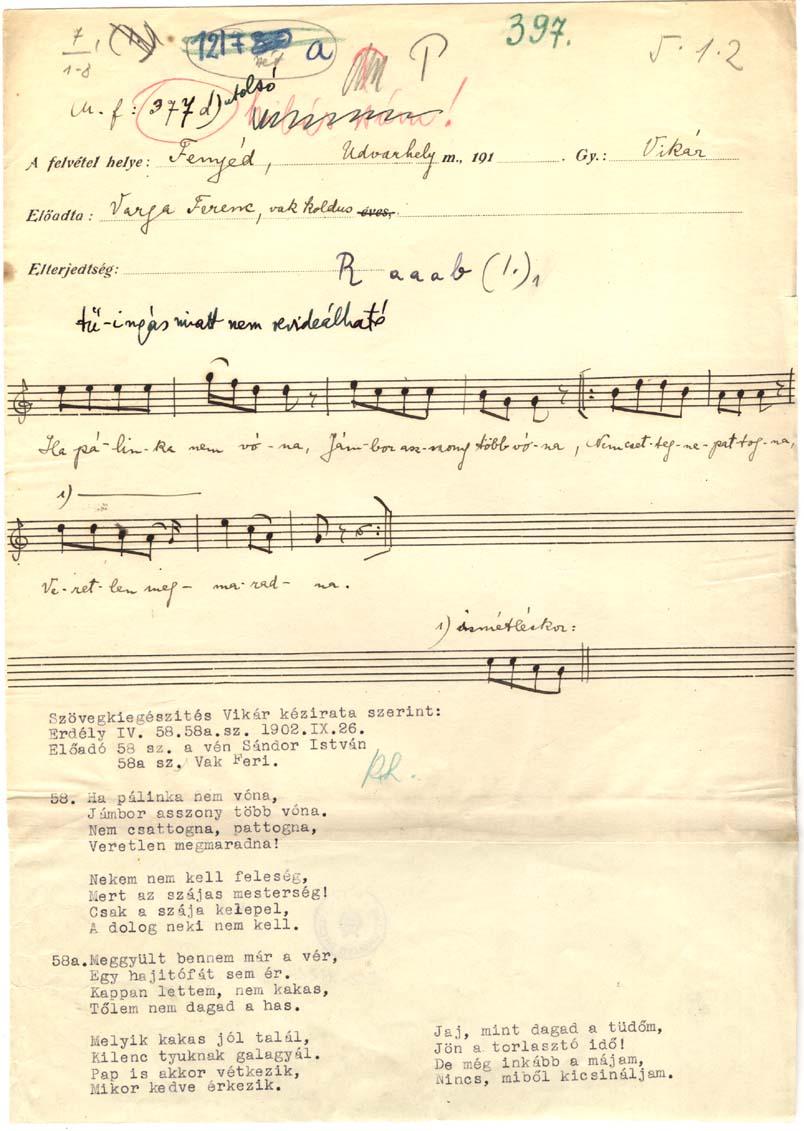 7
1-8
1217
a
P
397.
5.1.2
M. f: 377 d) utolsó
A felvétel helye: Fenyéd, Udvarhely m., 191 . Gy.: Vikár
Előadta: Varga Ferenc, vak koldus éves.
Elterjedtség: R a a a b (1.)₁
tű-ingás miatt nem revideálható
Ha pá-lin-ka nem vó-na, Jám-bor asz-szony több vó-na, Nem cset-teg-ne-pat-tog-na,
1)
Ve-ret-len meg-ma-rad-na.
1) ismétléskor:
Szövegkiegészités Vikár kézirata szerint:
Erdély IV. 58.58a.sz. 1902.IX.26.
Előadó 58 sz. a vén Sándor István
58a sz. Vak Feri.
58. Ha pálinka nem vóna,
Jámbor asszony több vóna.
Nem csattogna, pattogna,
Veretlen megmaradna!
Nekem nem kell feleség,
Mert az szájas mesterség!
Csak a szája kelepel,
A dolog neki nem kell.
58a.Meggyült bennem már a vér,
Egy hajitófát sem ér.
Kappan lettem, nem kakas,
Tőlem nem dagad a has.
Melyik kakas jól talál,
Kilenc tyuknak galagyál.
Pap is akkor vétkezik,
Mikor kedve érkezik.
Jaj, mint dagad a tüdőm,
Jön a torlasztó idő!
De még inkább a májam,
Nincs, miből kicsináljam.